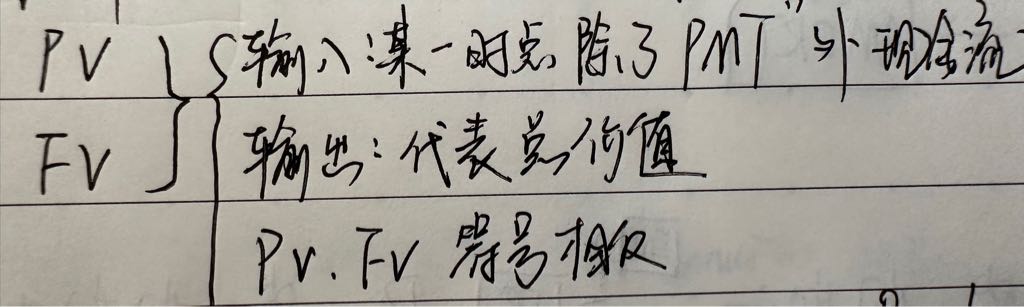 PV 输入:某一时点除了PMT"外现金流
FV 输出:代表总价值
PV.FV 符号相反